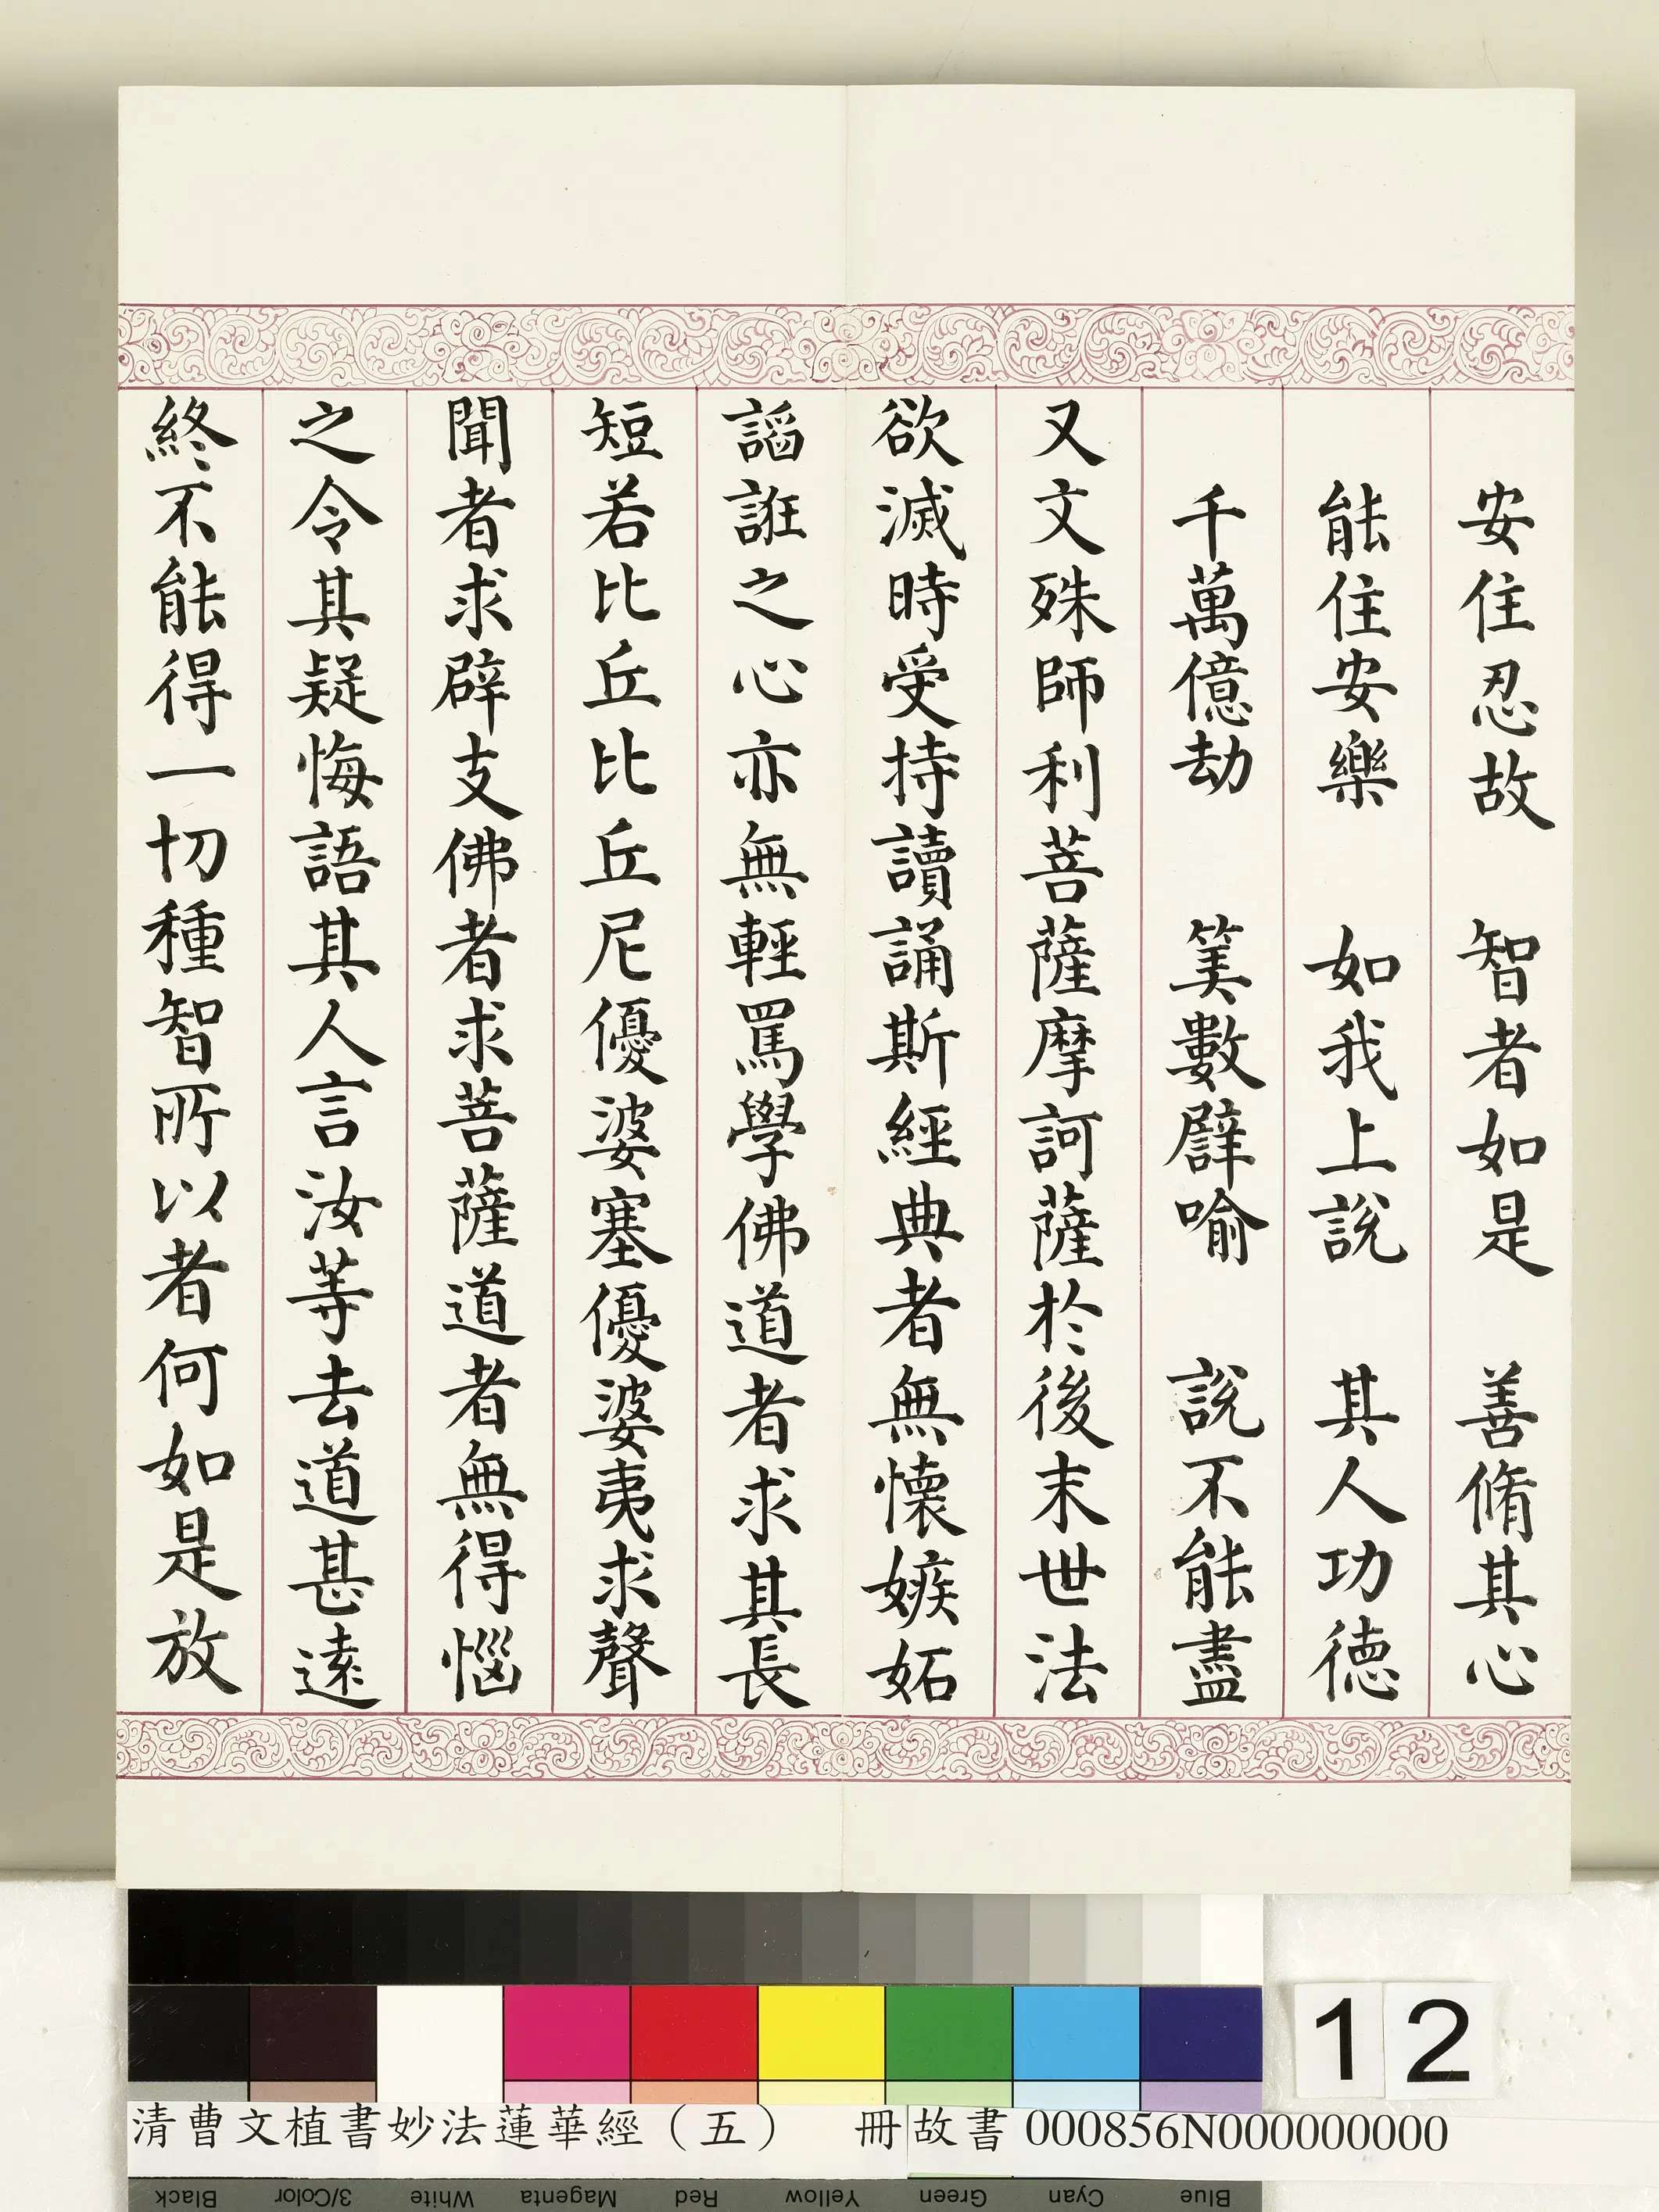 安住忍故　智者如是　善脩其心
能住安樂　如我上說　其人功德
千萬億劫　筭數譬喻　說不能盡
又文殊師利菩薩摩訶薩於後末世法
欲滅時受持讀誦斯經典者無懷嫉妬
謟誑之心亦無輕罵學佛道者求其長
短若比丘比丘尼優婆塞優婆夷求聲
聞者求辟支佛者求菩薩道者無得惱
之令其疑悔語其人言汝等去道甚遠
終不能得一切種智所以者何如是放
12
清曹文植書妙法蓮華經（五）　冊故書000856N000000000
Black 3/Color White Magenta Red Yellow Green Cyan Blue